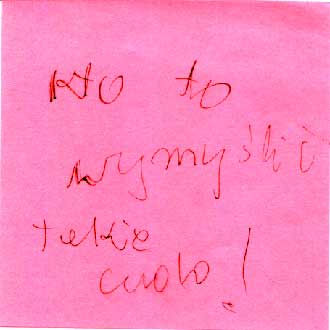 kto to
wymyślił
takie
cudo!